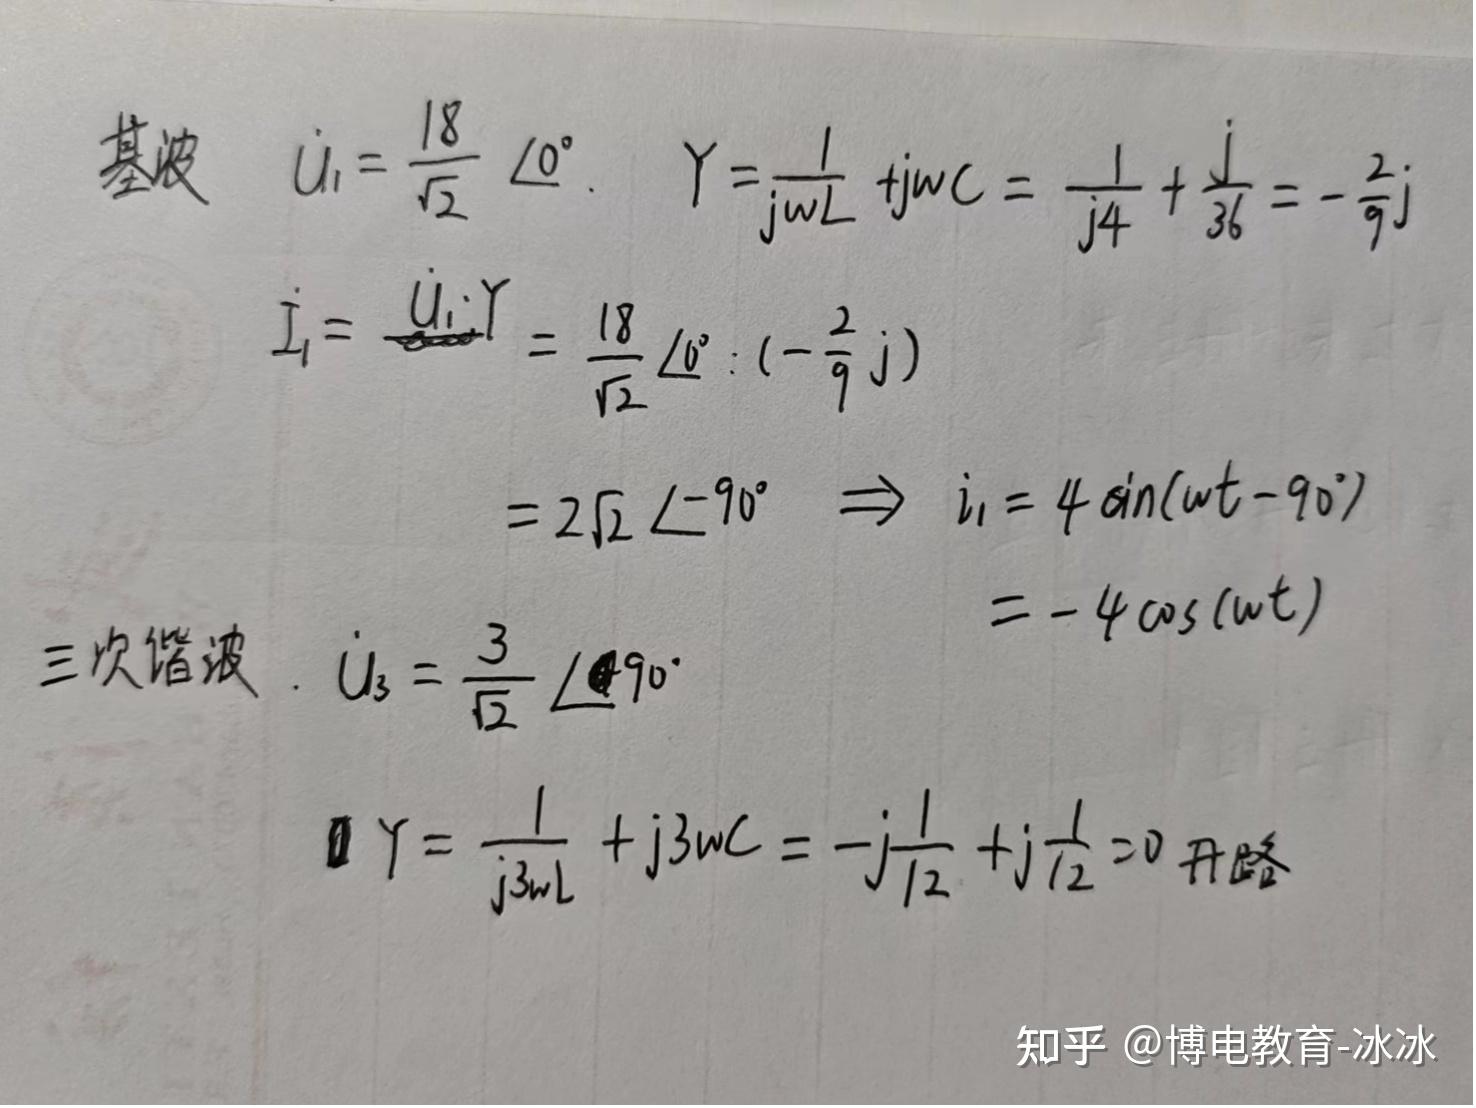 基波 U̇₁ = 18/√2 ∠0°. Y = 1/jwL + jwC = 1/j4 + j/36 = -2/9 j
İ₁ = U̇₁·Y = 18/√2 ∠0° · (-2/9 j)
= 2√2 ∠-90° ⇒ i₁ = 4 sin(wt-90°)
= -4 cos(wt)
三次谐波. U̇₃ = 3/√2 ∠90°
Y = 1/j3wL + j3wC = -j 1/12 + j 1/12 = 0 开路
知乎 @博电教育-冰冰